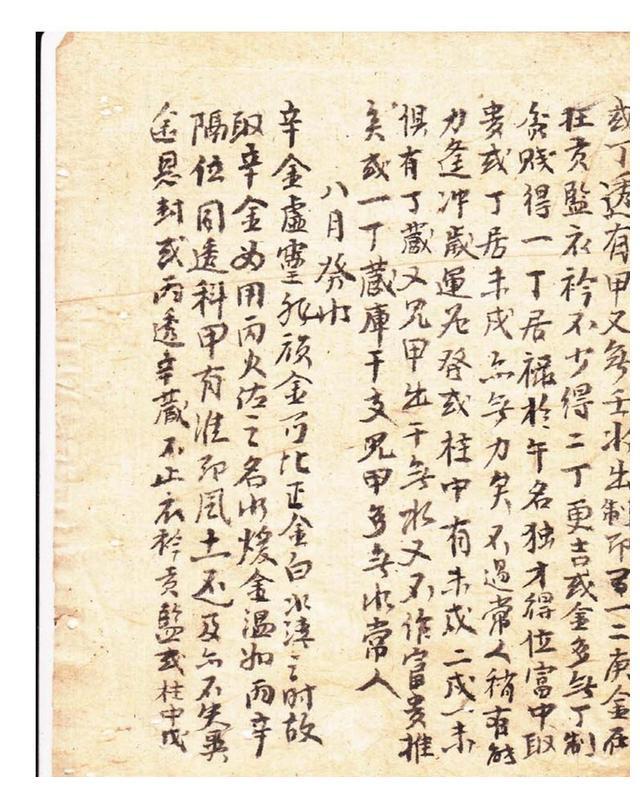 或丁透有甲又無壬水出制即百一二庚金在
柱貢監衣衿不少得二丁更吉或金多無丁制
貧賤得一丁居祿於午名独才得位富中取
貴或丁居未戌亦無力矣不過常人稍有能
力逢冲歲運若發或柱中有未戌二戌一未
俱有丁藏又見甲出干無水又不作富貴推
矣或一丁藏庫干支見甲多無水常人
八月癸水
辛金虛靈非頑金可比正金白水清之时故
取辛金为用丙火佐之名水煖金温如丙辛
隔位同透科甲有准即風土不及亦不失異
途恩封或丙透辛藏不止衣衿貢監或柱中戊